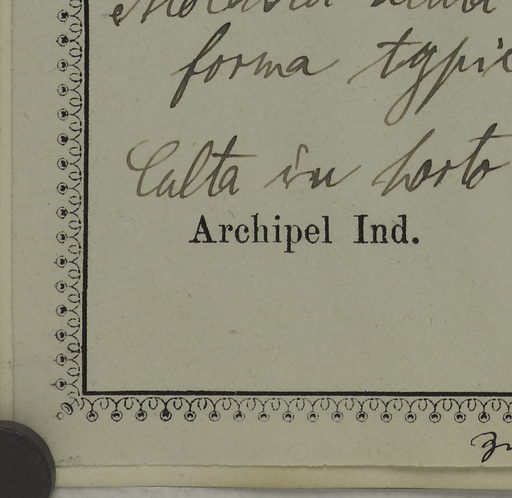 forma typic
Culta in horto
Archipel Ind.